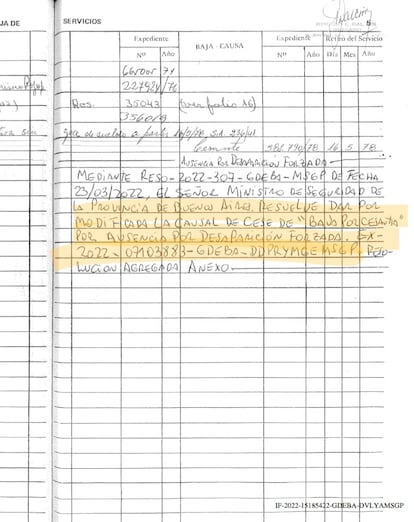 JA DE
SERVICIOS
5
Expediente
BAJA - CAUSA
Expediente
Retiro del Servicio
Nº
Año
Nº
Año
Día
Mes
Año
74
227924/76
Res. 35043
S.A.
Cesante 78 16 5 78
AUSENCIA POR DESAPARICIÓN FORZADA
MEDIANTE RESO-2022-307-GDEBA-MSGP DE FECHA
23/03/2022, EL SEÑOR MINISTRO DE SEGURIDAD DE
LA PROVINCIA DE BUENOS AIRES. RESUELVE DAR POR
MODIFICADA LA CAUSAL DE CESE DE "BAJA POR CESANTIA"
POR AUSENCIA POR DESAPARICIÓN FORZADA. EX-
2022-07103883-GDEBA-DDPRYMGEMSGP. RESO-
LUCION AGREGADA ANEXO.
IF-2022-15185422-GDEBA-DVLYAMSGP